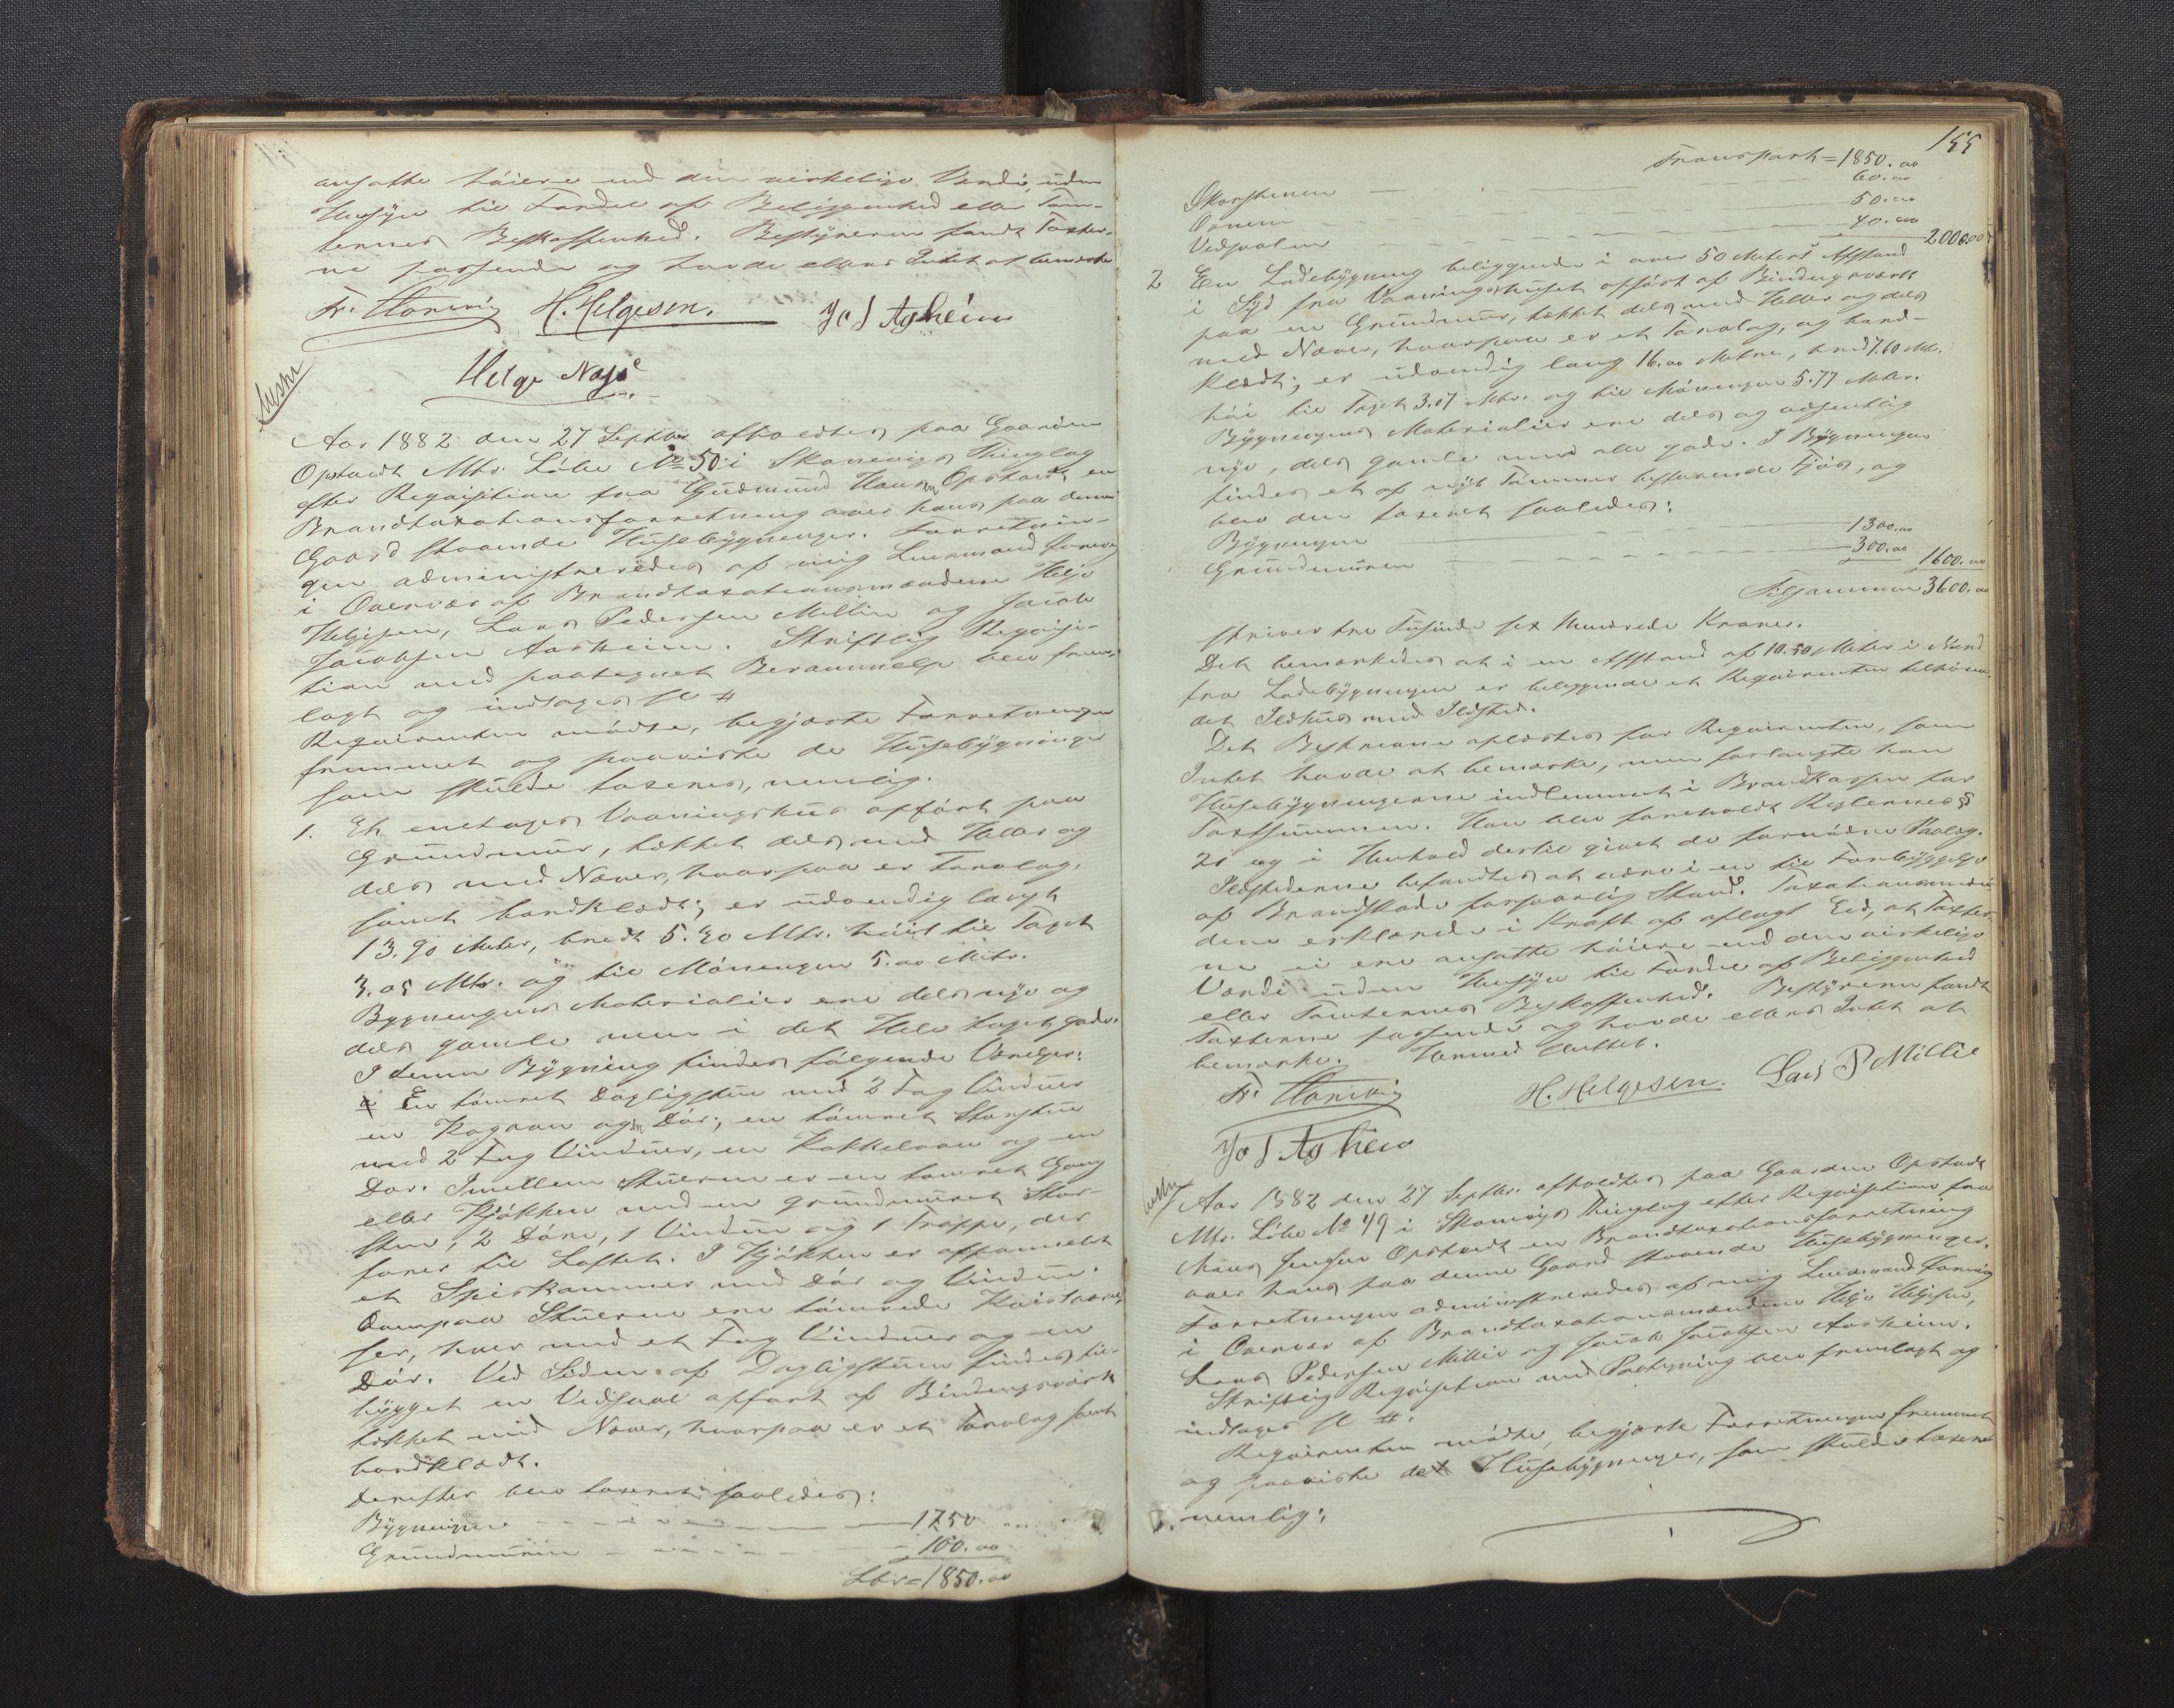 ansatte höiere end den virkelige Værdi, uden
Hensyn til Fordel af Beliggenhed eller Tom-
ternes Beskaffenhed. Bestyreren fandt Taxter-
ne passende og havde ellers Intet at bemærke
H. Helgesen. Jo J Asheim
Helge
Aar 1882 den 27 Septbr afholdtes paa Gaarden
Opstadt Mtr. Löbe No 50 i Skonevigs Thinglag
efter Reqvisition fra Gudmund Hansen Opstadt en
Brandtaxationsforretning over hans paa denne
Gaard staaende Husebygninger. Forretnin-
gen administreredes af mig Lensmand
i Overvær af Brandtaxationsmændene Helje
Heljesen, Lars Pedersen Millie og Jacob
Jacobsen Aasheim. Skriftlig Reqvisi-
tion med paategnet Berammelse blev frem-
lagt og indtages #
Reqvirenten mödte, begjærte Forretningen
fremmet og paaviste de Husebygninger
som skulde taxeres, nemlig.
1. Et enetages Vaaningshus opfört paa
Grundmur, tækket dels med Heller og
dels med Næver, hvorpaa er Torvlag,
samt bordklædt; er udvendig langt
13.90 Meter, bredt 5.20 Mtr. höit til Taget
3.05 Mtr. og til Möningen 5.00 Mtr.
Bygningens Materialier ere dels nye og
dels gamle men i det Hele taget gode.
I denne Bygning findes fölgende Værelser:
a En tömret Dagligstue med 2 Fag Vinduer
en Kogovn og en Dör; en tömret Storstue
med 2 Fag Vinduer, en Kakkelovn og en
Dör. Imellem Stuerne er en tömret Gang
eller Kjökken med en grundmuret Skor-
sten, 2 Döre, 1 Vindue og 1 Trappe, der
förer til Loftet. I Kjökken er afpanelet
et Spiskammer med Dör og Vindue.
Ovenpaa Stuerne ere tömrede Kvistværel-
ser, hver med et Fag Vinduer og en
Dör. Ved Siden af Dagligstuen findes til-
bygget en Vedsval opfört af Bindingsværk
tækket med Næver, hvorpaa er et Torvlag samt
bordklædt.
Derefter blev taxeret saaledes:
Bygningen 1750
Grundmuren 100.00
Lbr = 1850.00
155
Transport = 1850.00
Skorstenen 60.00
Ovnene 50.00
Vedsvalen 40.00 2000.00
2 En Ladebygning beliggende i over 50 Meters Afstand
i Syd fra Vaaningshuset opfört af Bindingsværk
paa en Grundmur, tækket dels med Heller og dels
med Næver, hvorpaa er et Torvlag, og bord-
klædt; er udvendig lang 16.00 Metre, bred 7.60 Mtr.
höi til Taget 3.07 Mtr. og til Möningen 5.77 Meter.
Bygningens Materialier ere dels og væsentlig
nye, dels gamle men alle gode. I Bygningen
findes et af nyt Tömmer bestaaende Fjös, og
blev den taxeret saaledes:
Bygningen 1300.00
Grundmuren 300.00 1600.00
Tilsammen 3600.00
skriver tre Tusinde sex Hundrede Kroner.
Det bemærkedes at i en Afstand af 10.50 Meter i Nord
fra Ladebygningen er beliggende et Reqvirenten tilhören-
det Ildhus med Ildsted.
Det Beskrevne oplæstes for Reqvirenten, som
Intet havde at bemærke, men forlangte han
Husebygningerne indlemmet i Brandkassen for
Taxtsummen. Han blev foreholdt Reglernes §
21 og i Henhold dertil givet de fornödne Paalæg.
Ildstederne befandtes at være i en til Forbyggelse
af Brandskade forsvarlig Stand. Taxationsmæn-
dene erklærede i Kraft af aflagt Eed, at Taxter-
ne ei ere ansatte höiere end den virkelige
Værdi uden Hensyn til Fordel af Beliggenhed
eller Tomternes Beskaffenhed. Bestyreren fandt
Taxterne passende og havde ellers Intet at
bemærke. Hermed sluttet.
H. Helgesen. Lars P Millie
Jo J Asheim
Aar 1882 den 27 Septbr. afholdtes paa Gaarden Opstadt
Mtr. Löbe No 49 i Skonevigs Thinglag efter Reqvisition fra
Mons Jensen Opstadt en Brandtaxationsforretning
over hans paa denne Gaard staaende Husebygninger.
Forretningen administreredes af mig Lensmand
i Overvær af Brandtaxationsmændene Helje Heljesen,
Lars Pedersen Millie og Jacob Jacobsen Aasheim.
Skriftlig Reqvisition med Paategning blev fremlagt og
indtages #.
Reqvirenten mödte, begjærte Forretningen fremmet
og paaviste de Husebygninger, som skulde taxeres
nemlig: